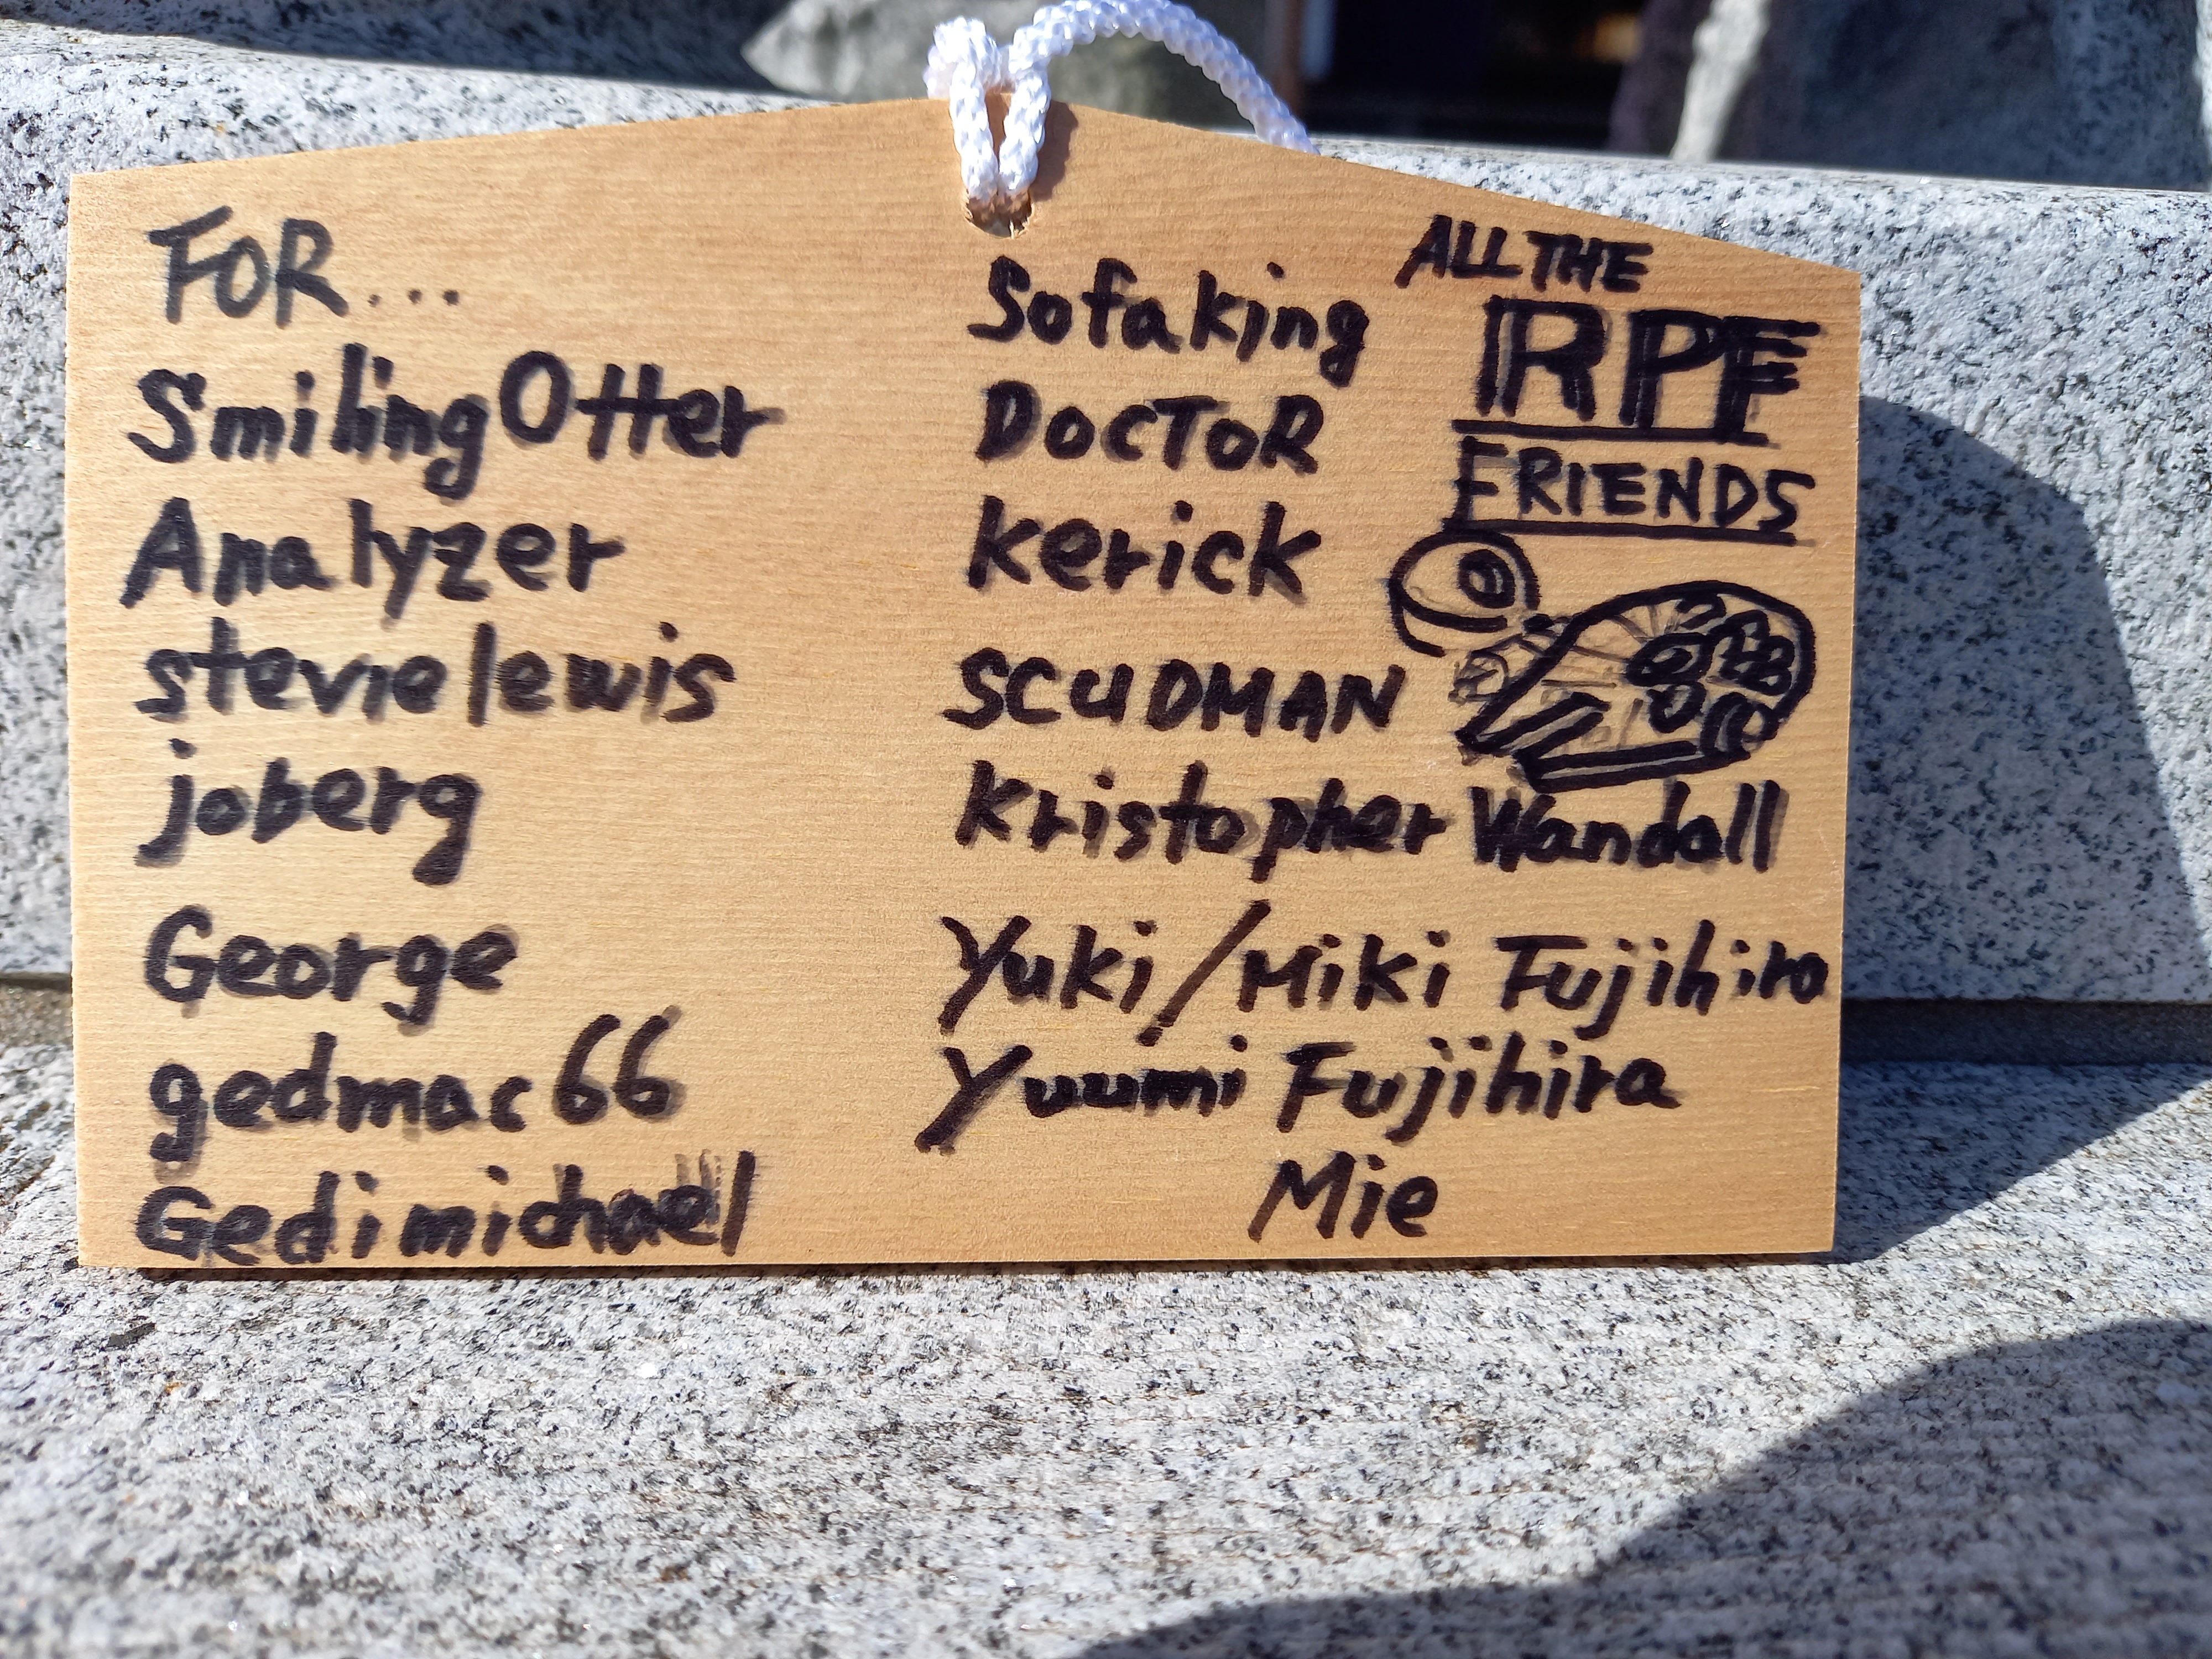 FOR...
SmilingOtter
Analyzer
stevielewis
joberg
George
gedmac66
Gedimichael
Sofaking
DOCTOR
Kerick
SCUDMAN
Kristopher Wandall
Yuki/Miki Fujihira
Yuumi Fujihira
Mie
ALL THE
RPF
FRIENDS